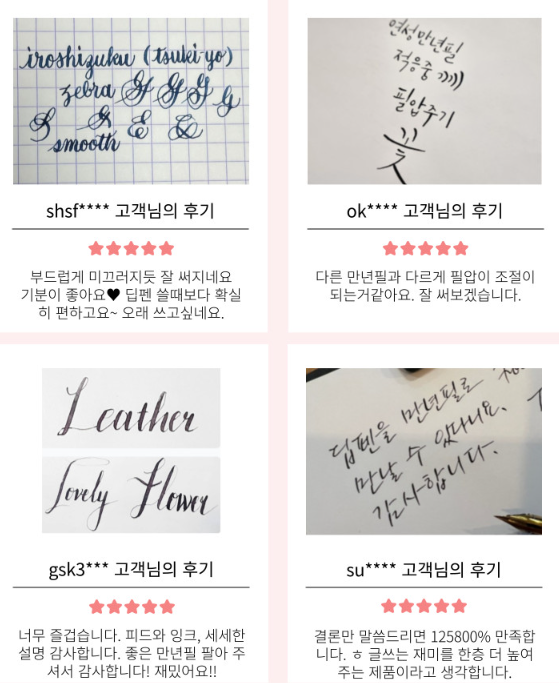 iroshizuku (tsuki-yo)
zebra
smooth
shsf**** 고객님의 후기
부드럽게 미끄러지듯 잘 써지네요
기분이 좋아요♥ 딥펜 쓸때보다 확실
히 편하고요~ 오래 쓰고싶네요.
연성만년필
적응중
필압주기
ok**** 고객님의 후기
다른 만년필과 다르게 필압이 조절이
되는거같아요. 잘 써보겠습니다.
Leather
Lovely Flower
gsk3*** 고객님의 후기
너무 즐겁습니다. 피드와 잉크, 세세한
설명 감사합니다. 좋은 만년필 팔아 주
셔서 감사합니다! 재밌어요!!
딥펜을 만년필로
만날 수 있다니요.
감사합니다.
su**** 고객님의 후기
결론만 말씀드리면 125800% 만족합
니다. ㅎ 글쓰는 재미를 한층 더 높여
주는 제품이라고 생각합니다.